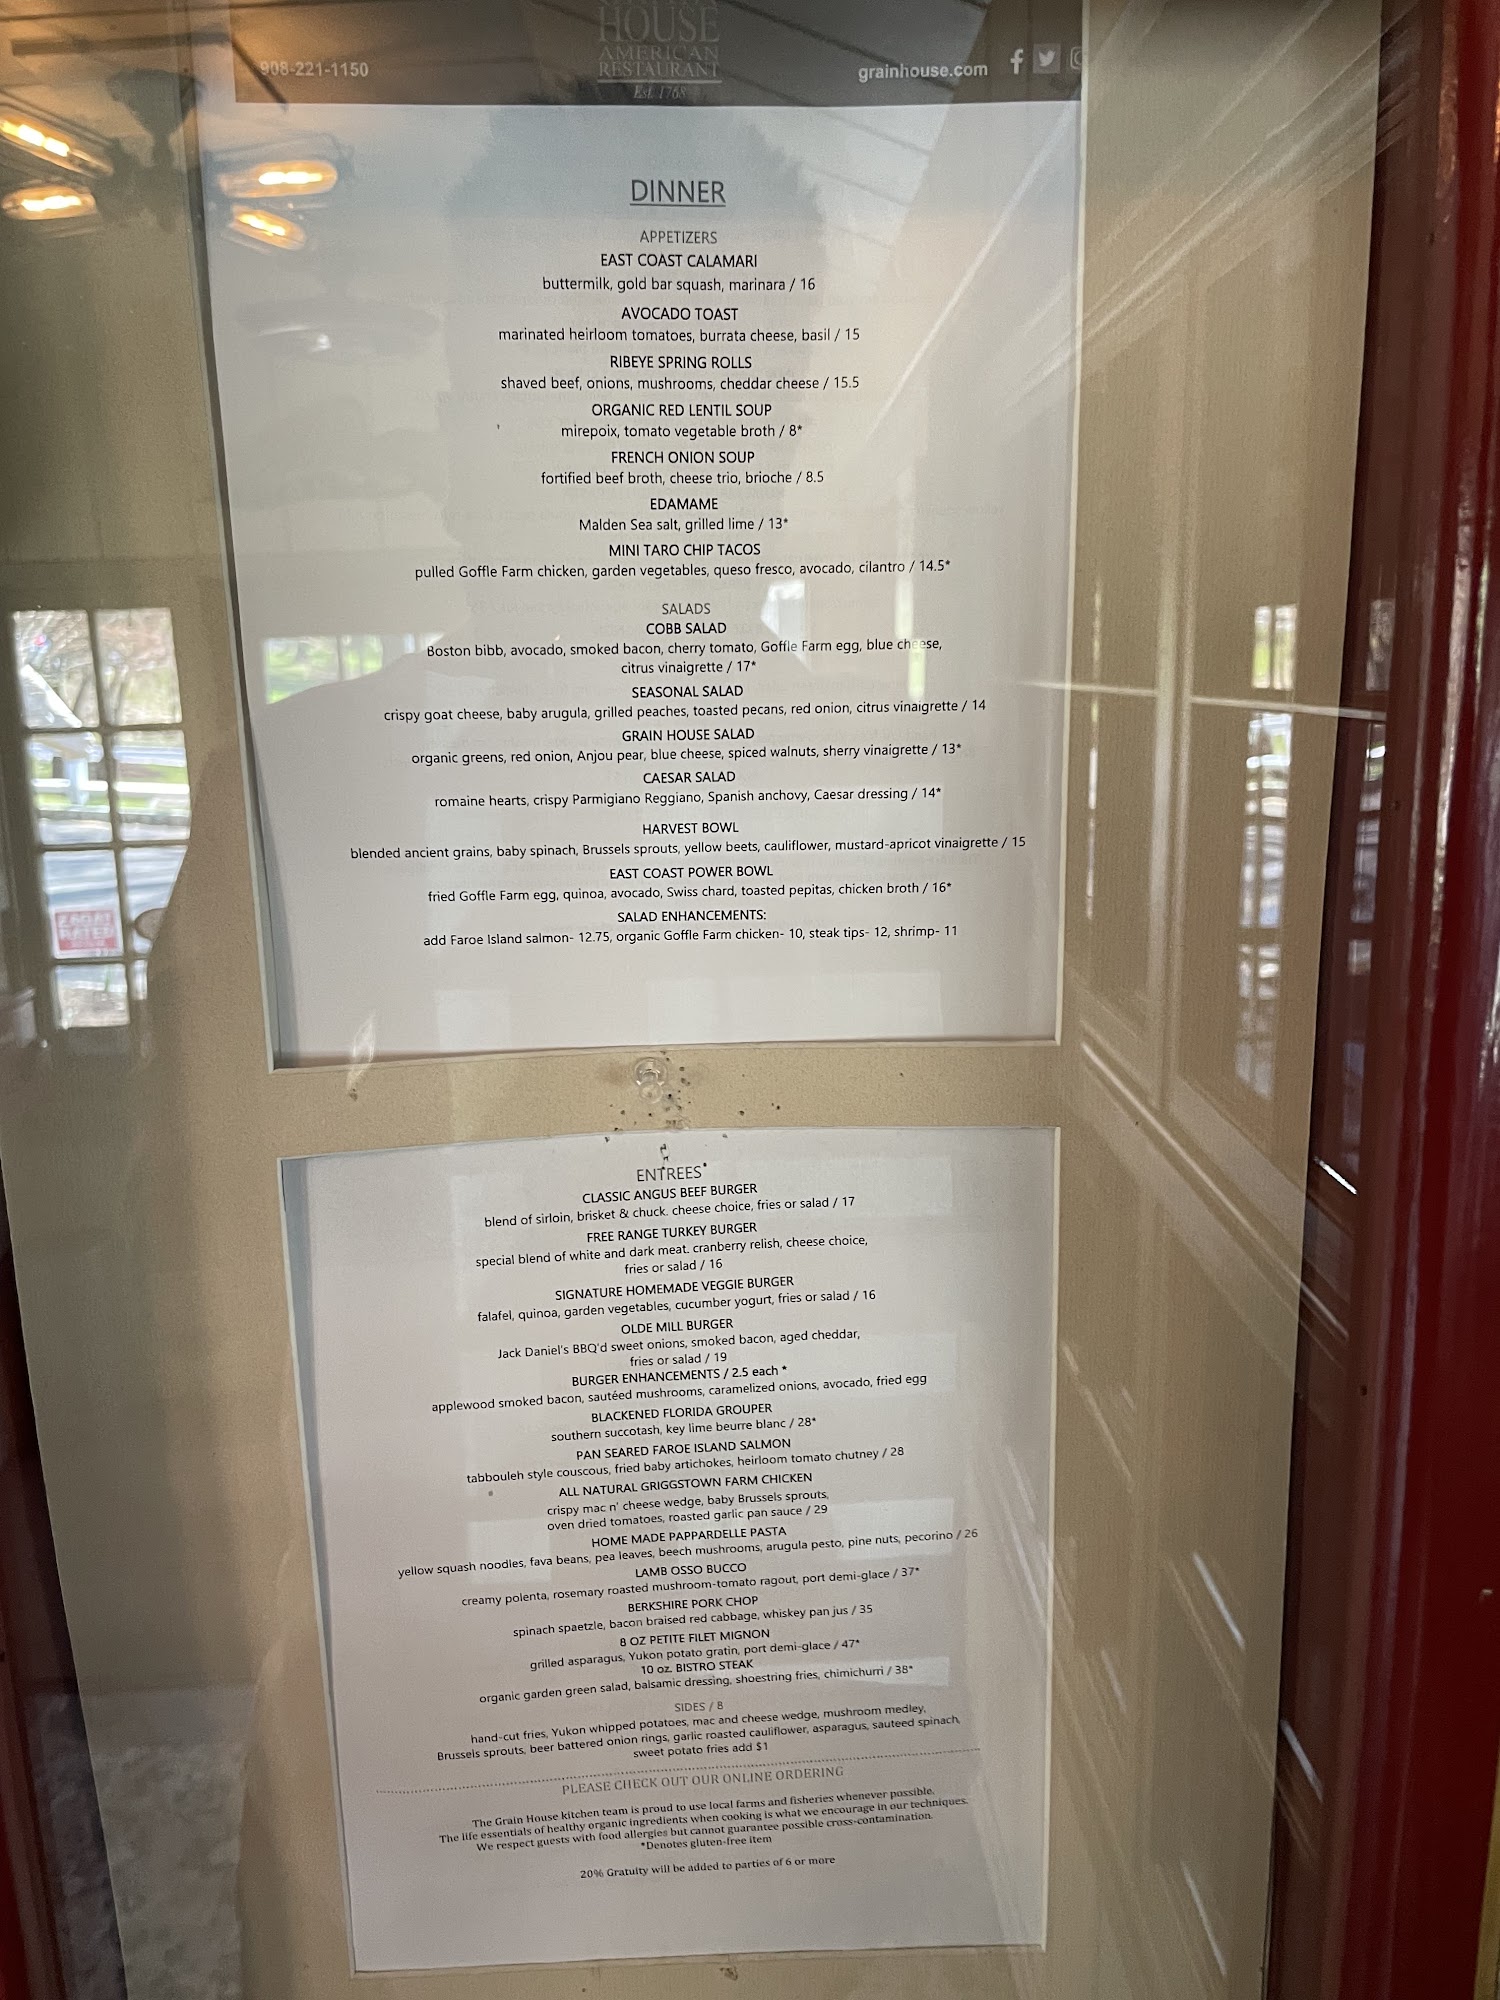 HOUSE
AMERICAN
RESTAURANT
Est. 1768
908-221-1150
grainhouse.com
DINNER
APPETIZERS
EAST COAST CALAMARI
buttermilk, gold bar squash, marinara / 16
AVOCADO TOAST
marinated heirloom tomatoes, burrata cheese, basil / 15
RIBEYE SPRING ROLLS
shaved beef, onions, mushrooms, cheddar cheese / 15.5
ORGANIC RED LENTIL SOUP
mirepoix, tomato vegetable broth / 8*
FRENCH ONION SOUP
fortified beef broth, cheese trio, brioche / 8.5
EDAMAME
Malden Sea salt, grilled lime / 13*
MINI TARO CHIP TACOS
pulled Goffle Farm chicken, garden vegetables, queso fresco, avocado, cilantro / 14.5*
SALADS
COBB SALAD
Boston bibb, avocado, smoked bacon, cherry tomato, Goffle Farm egg, blue cheese,
citrus vinaigrette / 17*
SEASONAL SALAD
crispy goat cheese, baby arugula, grilled peaches, toasted pecans, red onion, citrus vinaigrette / 14
GRAIN HOUSE SALAD
organic greens, red onion, Anjou pear, blue cheese, spiced walnuts, sherry vinaigrette / 13*
CAESAR SALAD
romaine hearts, crispy Parmigiano Reggiano, Spanish anchovy, Caesar dressing / 14*
HARVEST BOWL
blended ancient grains, baby spinach, Brussels sprouts, yellow beets, cauliflower, mustard-apricot vinaigrette / 15
EAST COAST POWER BOWL
fried Goffle Farm egg, quinoa, avocado, Swiss chard, toasted pepitas, chicken broth / 16*
SALAD ENHANCEMENTS:
add Faroe Island salmon- 12.75, organic Goffle Farm chicken- 10, steak tips- 12, shrimp- 11
ENTREES
CLASSIC ANGUS BEEF BURGER
blend of sirloin, brisket & chuck. cheese choice, fries or salad / 17
FREE RANGE TURKEY BURGER
special blend of white and dark meat. cranberry relish, cheese choice,
fries or salad / 16
SIGNATURE HOMEMADE VEGGIE BURGER
falafel, quinoa, garden vegetables, cucumber yogurt, fries or salad / 16
OLDE MILL BURGER
Jack Daniel's BBQ'd sweet onions, smoked bacon, aged cheddar,
fries or salad / 19
BURGER ENHANCEMENTS / 2.5 each *
applewood smoked bacon, sautéed mushrooms, caramelized onions, avocado, fried egg
BLACKENED FLORIDA GROUPER
southern succotash, key lime beurre blanc / 28*
PAN SEARED FAROE ISLAND SALMON
tabbouleh style couscous, fried baby artichokes, heirloom tomato chutney / 28
ALL NATURAL GRIGGSTOWN FARM CHICKEN
crispy mac n' cheese wedge, baby Brussels sprouts,
oven dried tomatoes, roasted garlic pan sauce / 29
HOME MADE PAPPARDELLE PASTA
yellow squash noodles, fava beans, pea leaves, beech mushrooms, arugula pesto, pine nuts, pecorino / 26
LAMB OSSO BUCCO
creamy polenta, rosemary roasted mushroom-tomato ragout, port demi-glace / 37*
BERKSHIRE PORK CHOP
spinach spaetzle, bacon braised red cabbage, whiskey pan jus / 35
8 OZ PETITE FILET MIGNON
grilled asparagus, Yukon potato gratin, port demi-glace / 47*
10 oz. BISTRO STEAK
organic garden green salad, balsamic dressing, shoestring fries, chimichurri / 38*
SIDES / 8
hand-cut fries, Yukon whipped potatoes, mac and cheese wedge, mushroom medley,
Brussels sprouts, beer battered onion rings, garlic roasted cauliflower, asparagus, sauteed spinach,
sweet potato fries add $1
PLEASE CHECK OUT OUR ONLINE ORDERING
The Grain House kitchen team is proud to use local farms and fisheries whenever possible.
The life essentials of healthy organic ingredients when cooking is what we encourage in our techniques.
We respect guests with food allergies but cannot guarantee possible cross-contamination.
*Denotes gluten-free item
20% Gratuity will be added to parties of 6 or more